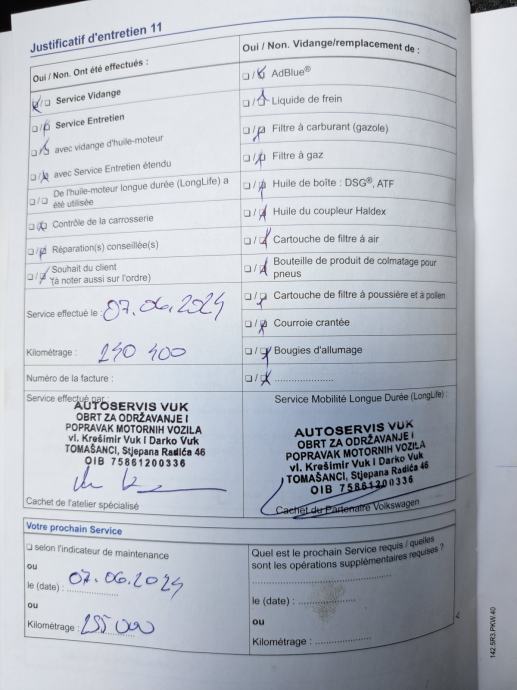 Justificatif d'entretien 11
Oui / Non. Ont été effectués :
Service Vidange
Service Entretien
avec vidange d'huile-moteur
avec Service Entretien étendu
De l'huile-moteur longue durée (LongLife) a
été utilisée
Contrôle de la carrosserie
Réparation(s) conseillée(s)
Souhait du client
(à noter aussi sur l'ordre)
Service effectué le : 07.06.2024
Kilométrage : 240 400
Numéro de la facture :
Service effectué par :
AUTOSERVIS VUK
OBRT ZA ODRŽAVANJE I
POPRAVAK MOTORNIH VOZILA
vl. Krešimir Vuk i Darko Vuk
TOMAŠANCI, Stjepana Radića 46
OIB 75861200336
Cachet de l'atelier spécialisé
Oui / Non. Vidange/remplacement de :
AdBlue®
Liquide de frein
Filtre à carburant (gazole)
Filtre à gaz
Huile de boîte : DSG®, ATF
Huile du coupleur Haldex
Cartouche de filtre à air
Bouteille de produit de colmatage pour
pneus
Cartouche de filtre à poussière et à pollen
Courroie crantée
Bougies d'allumage
Service Mobilité Longue Durée (LongLife) :
AUTOSERVIS VUK
OBRT ZA ODRŽAVANJE I
POPRAVAK MOTORNIH VOZILA
vl. Krešimir Vuk i Darko Vuk
TOMAŠANCI, Stjepana Radića 46
OIB 75861200336
Cachet du Partenaire Volkswagen
Votre prochain Service
selon l'indicateur de maintenance
ou
le (date) : 07.06.2024
ou
Kilométrage : 255 000
Quel est le prochain Service requis / quelles
sont les opérations supplémentaires requises ?
le (date) :
ou
Kilométrage :
142.5R3.PKW.40